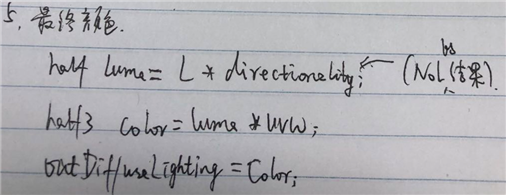 5、最终颜色.
half Luma = L * directionality; ← (NoL 结果).
half3 Color = Luma * UVW;
outDiffuseLighting = Color;